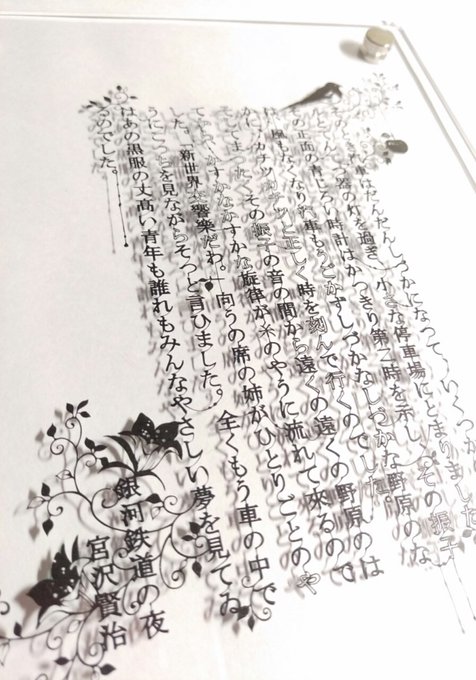 汽車はだんだんしづかになって、いくつか
てんてつ器の灯を過ぎ、小さな停車場にとまりました。
その正面の青じろい時計はかっきり第二時を示し、その振子
は風もなくなり汽車もうごかずしづかなしづかな野原のな
かにカチッカチッと正しく時を刻んで行くのでした。
そしてまったくその振子の音の間から遠くの遠くの野原のは
てから、かすかなかすかな旋律が糸のやうに流れて來るので
した。「新世界交響樂だわ。」向うの席の姉がひとりごとのや
うにこっちを見ながらそっと言ひました。全くもう車の中で
はあの黒服の丈髙い青年も誰れもみんなやさしい夢を見てゐ
るのでした。
銀河鉄道の夜
宮沢賢治